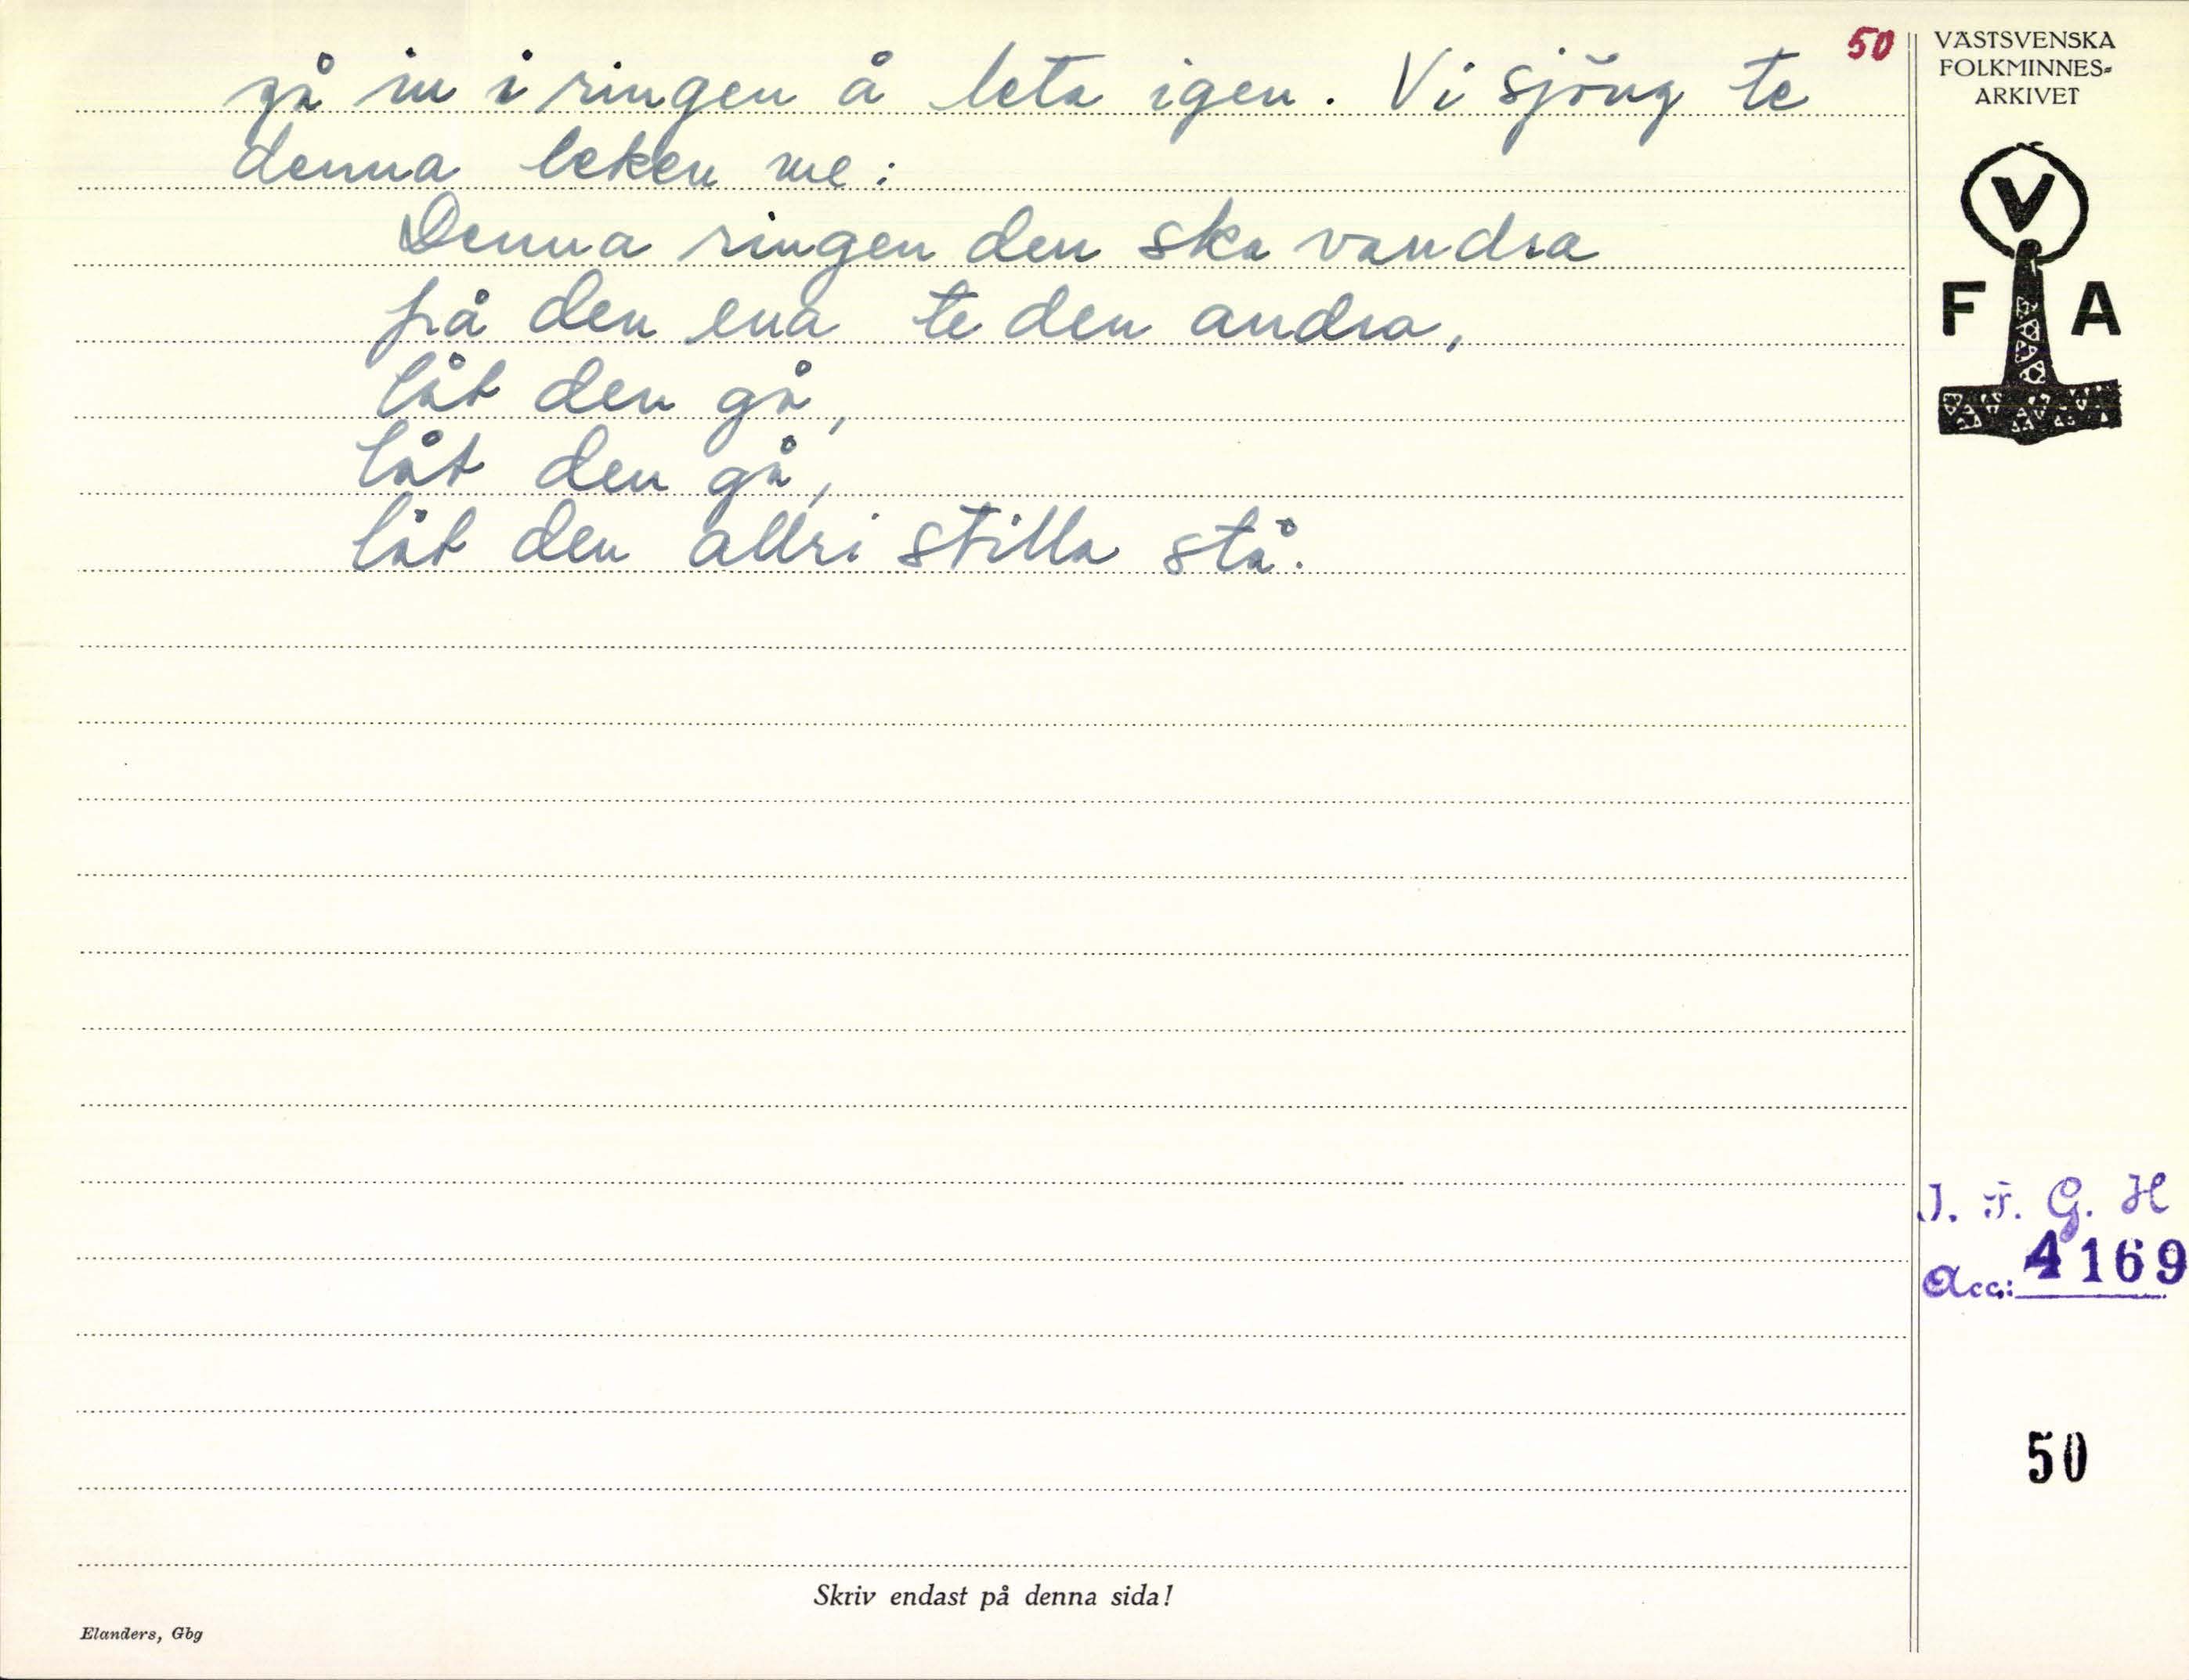 50
gå in i ringen å leta igen. Vi sjöng te
denna leken me:
Denna ringen den ska vandra
frå den ena te den andra,
låt den gå,
låt den gå,
låt den allri stilla stå.
VÄSTSVENSKA
FOLKMINNES-
ARKIVET
V
F A
I. F. G. H
Acc: 4169
50
Skriv endast på denna sida!
Elanders, Gbg